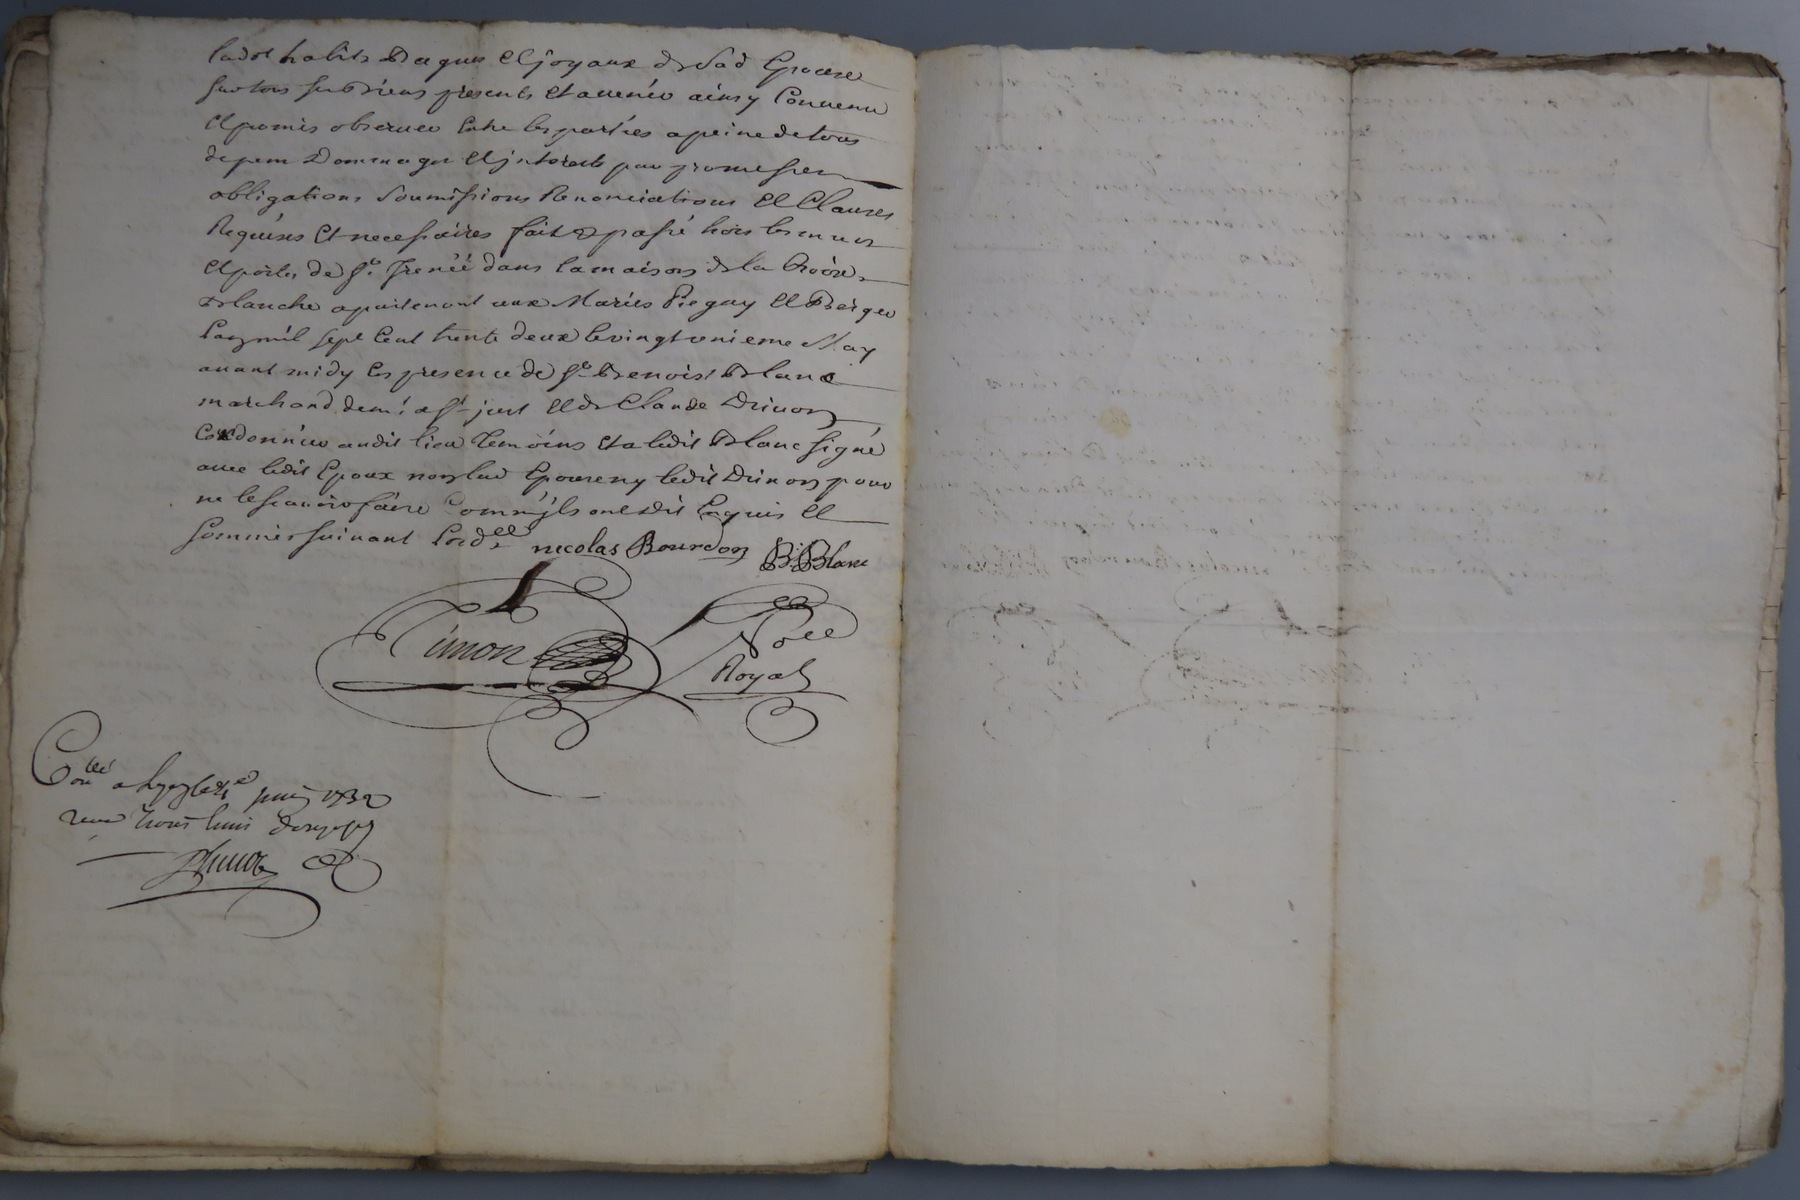 ladot habits Bagues Et joyaux de Sad Epouse
Sur tous ses Biens presents et avenir ainsy Convenu
Et promis observer Entre les parties a peine de tous
depens Dommages Et jnterests par promesses
obligations Soumissions Renonciations Et Clauses
Requises Et necessaires fait & passé hors les murs
Et portes de St. Irenée dans la maison de la Croix
Blanche apartenant aux Mariés Piegay Et Berger
Lan mil sept Cent trente deux le vingt unieme May
avant midy En presence de Sr. Benoist Blanc
marchand demt. a St. just Et de Claude Drivon
Cordonnier audit lieu Temoins Et a ledit Blanc signé
avec ledit Epoux non lad Epouse ny ledit Drivon pour
ne le scavoir faire Comm'ils ont dit Enquis Et
Sommés suivant Lord.ce nicolas Bourdon B. Blanc
Timon Noel
Royal
Contlé a Lyon le 4e juin 1732
receu trois livres